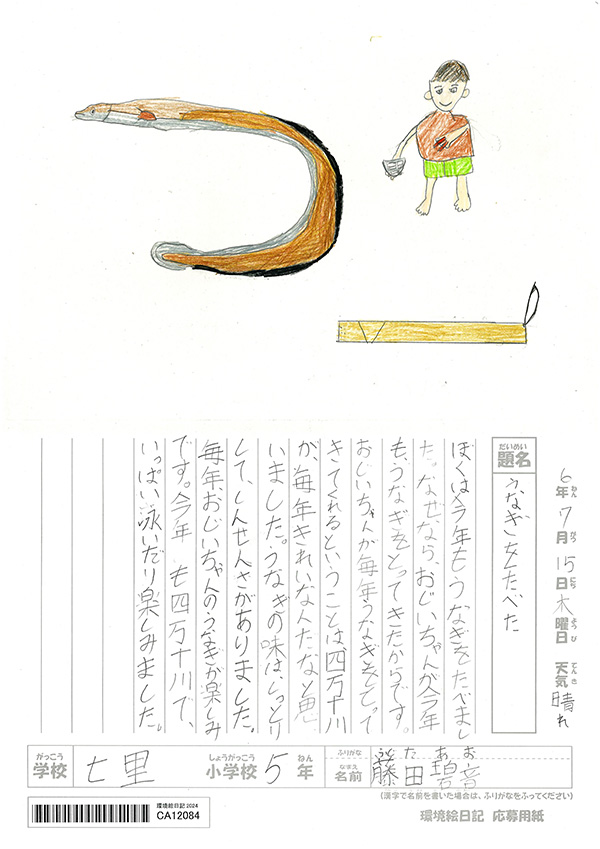 6年7月15日木曜日 天気 晴れ
ねん がつ にち ようび てんき
だいめい
題名
うなぎをたべた
ぼくは今年もうなぎをたべまし
た。なぜなら、おじいちゃんが今年
も、うなぎをとってきたからです。
おじいちゃんが毎年うなぎをとって
きてくれるということは、四万十川
が、毎年きれいなんだなと思
いました。うなぎの味は、しっとり
して、しんせんさがありました。
毎年、おじいちゃんのうなぎが楽しみ
です。今年も四万十川で、
いっぱい泳いだり楽しみました。
がっこう
学校
七里
しょうがっこう
小学校
5
ねん
年
ふりがな
なまえ
名前
た あ お
藤田碧音
(漢字で名前を書いた場合は、ふりがなをふってください)
環境絵日記 2024
CA12084
環境絵日記 応募用紙